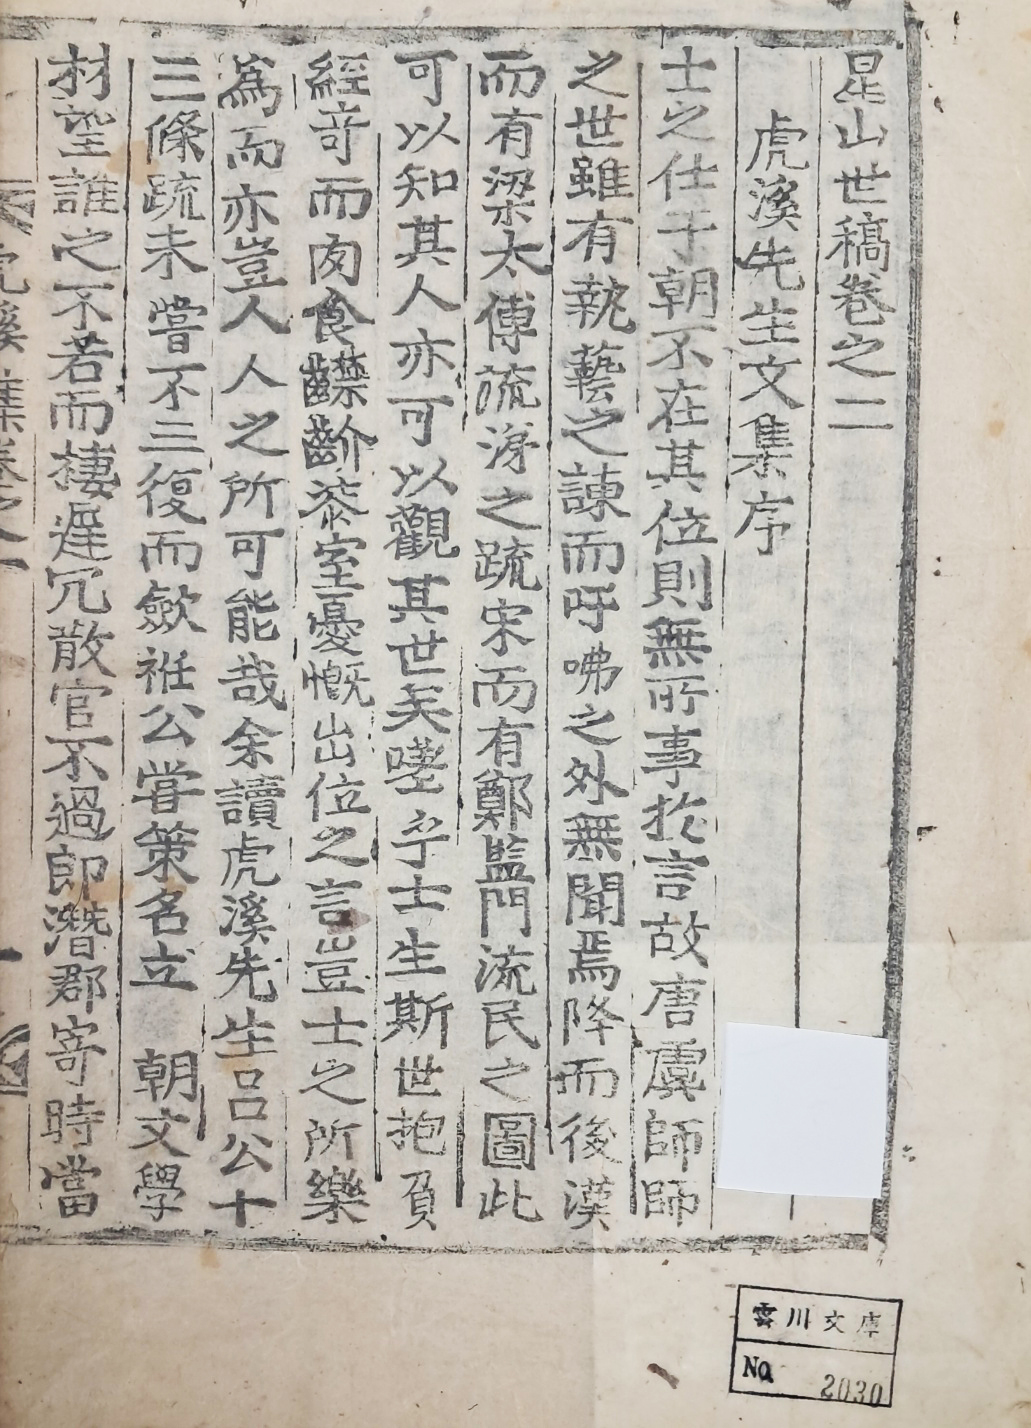 星山世稿卷之二
虎溪先生文集序
士之仕于朝不在其位則無所事於言故唐虞師師
之世雖有執藝之諫而吁咈之外無聞焉降而後漢
而有梁太傅流涕之疏宋而有鄭監門流民之圖此
可以知其人亦可以觀其世矣嗟乎士生斯世抱負
經奇而肉食齽齘漆室憂慨出位之言豈士之所樂
爲而亦豈人人之所可能哉余讀虎溪先生呂公十
三條疏未嘗不三復而歛袵公嘗策名立 朝文學
材望誰之不若而棲遲冗散官不過郎潛郡寄時當
虎溪集卷之一
雲川文庫
No 2030